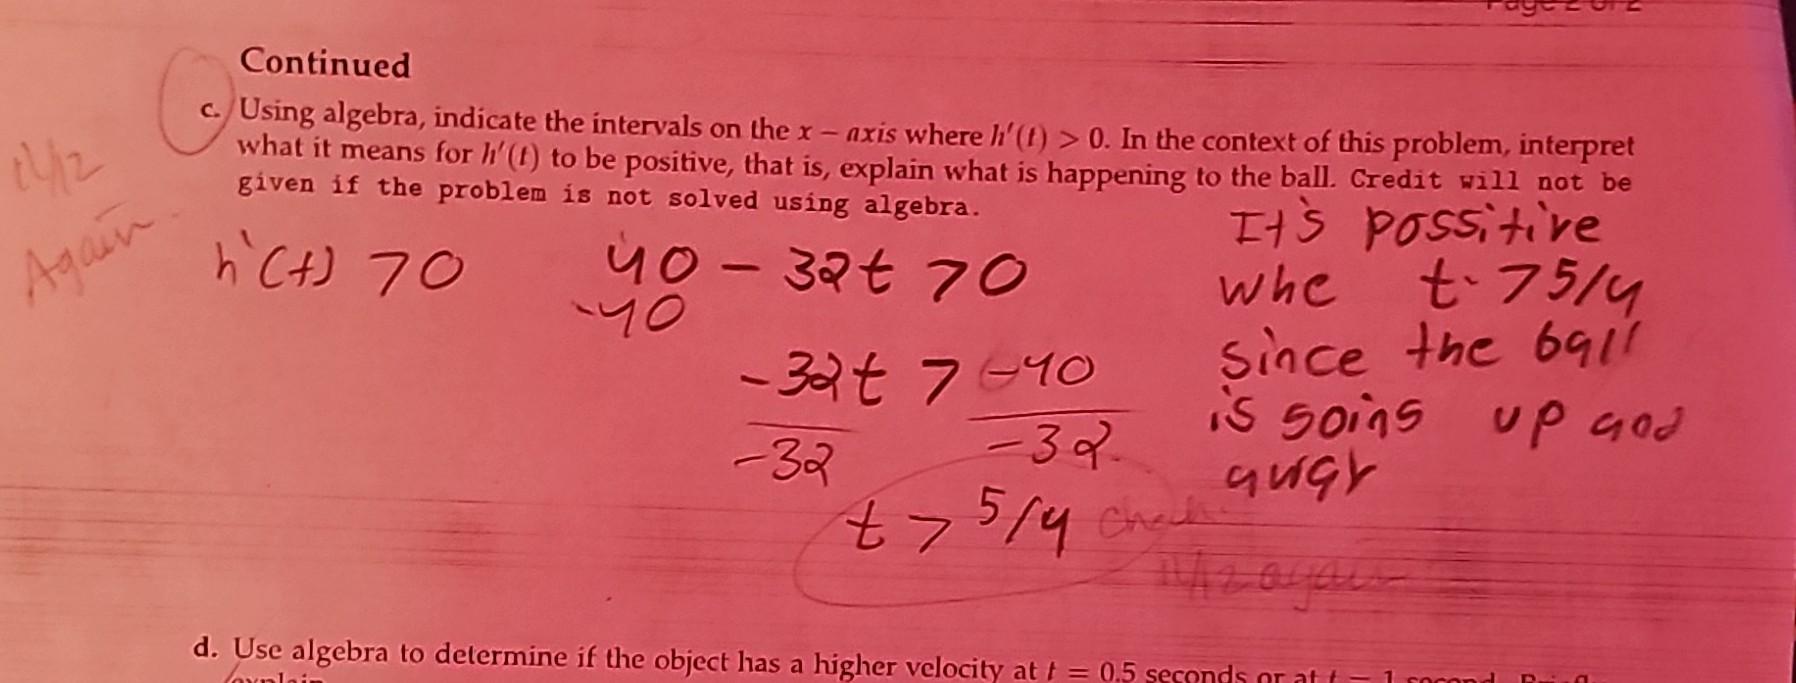 Page 2 of 2
Continued
c. Using algebra, indicate the intervals on the x – axis where h′(t) > 0. In the context of this problem, interpret
what it means for h′(t) to be positive, that is, explain what is happening to the ball. Credit will not be
given if the problem is not solved using algebra.
Again
h'(t) > 0
40 - 32t > 0
-40
-32t > -40
-32 -32
t > 5/4
It's possitive
whe t > 5/4
since the ball
is going up and
away
again
d. Use algebra to determine if the object has a higher velocity at t = 0.5 seconds or at t = 1 second.
explain